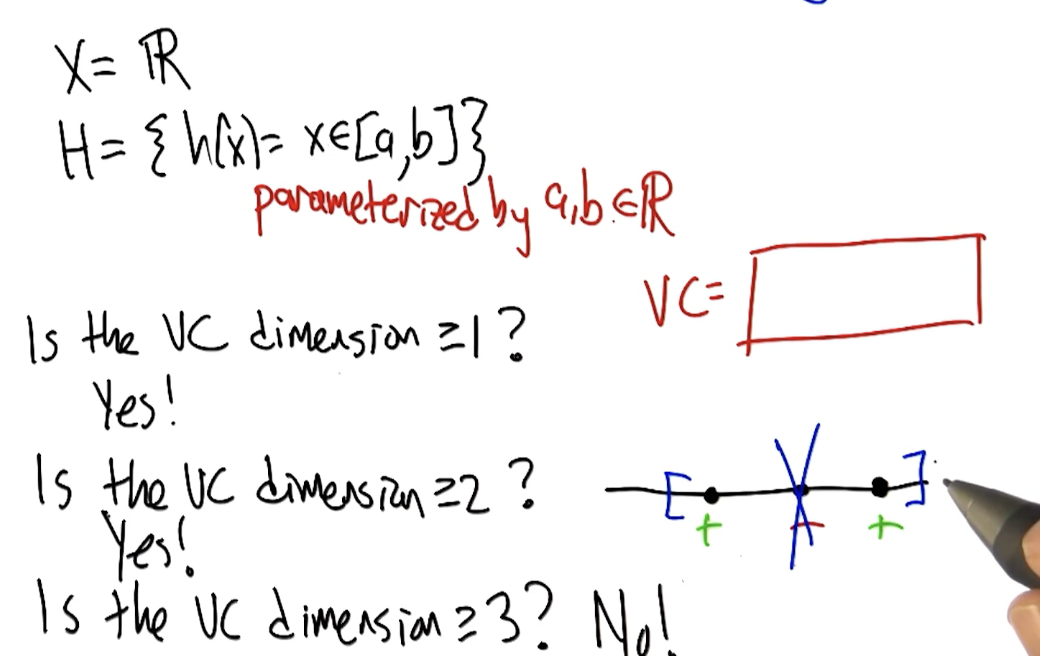 X= ℝ
H= { h(x)= x∈[a,b]}
parameterized by a,b∈ℝ
VC=
Is the VC dimension ≥1?
Yes!
Is the VC dimension ≥2?
Yes!
[ ]
+ - +
Is the VC dimension ≥3? No!